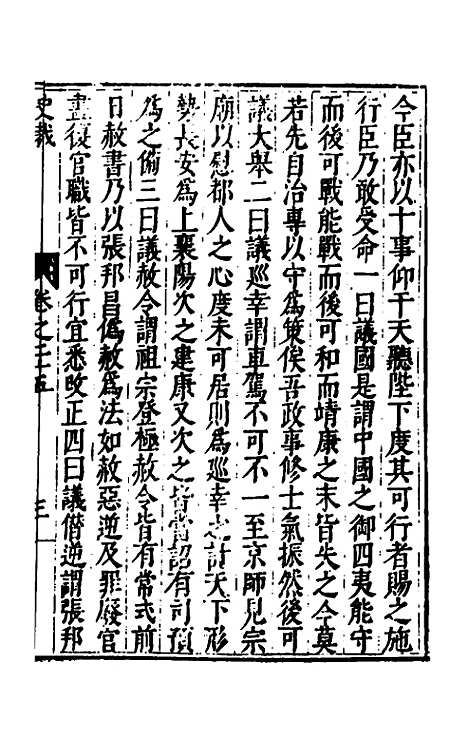 今臣亦以十事仰干天聽陛下度其可行者賜之施
行臣乃敢受命一曰議國是謂中國之御四夷能守
而後可戰能戰而後可和而靖康之末皆失之今莫
若先自治專以守爲策俟吾政事修士氣振然後可
議大舉二曰議巡幸謂車駕不可不一至京師見宗
廟以慰都人之心度未可居則爲巡幸之計天下形
勢長安爲上襄陽次之建康又次之皆當詔有司預
爲之備三曰議赦令謂祖宗登極赦令皆有常式前
日赦書乃以張邦昌僞赦爲法如赦惡逆及罪廢官
盡復官職皆不可行宜悉改正四曰議僭逆謂張邦
史裁
卷之二十五
三